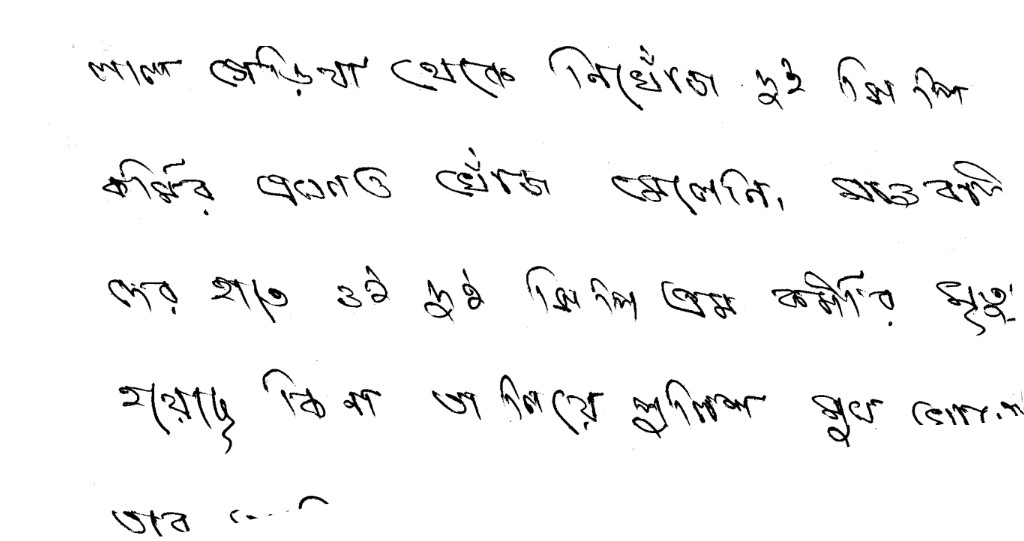 লাল জেড়িয়া থেকে নিখোঁজ দুই সিপি
কর্মির এখনও খোঁজ মেলেনি, মাওবাদি
দের হাতে ওই দুই সিপি এম কর্মীর মৃত্যু
হয়েছে কিনা তা নিয়ে পুলিশ মুখ
তার